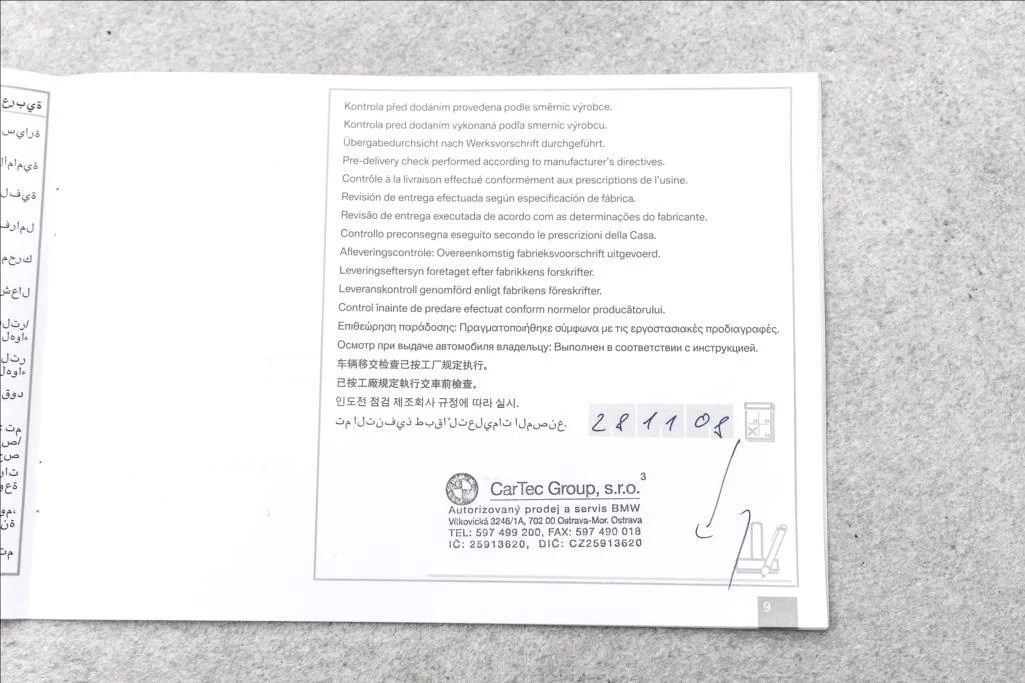 عربية
سيارة
Kontrola před dodáním provedena podle směrnic výrobce.
Kontrola pred dodaním vykonaná podľa smerníc výrobcu.
Übergabedurchsicht nach Werksvorschrift durchgeführt.
Pre-delivery check performed according to manufacturer's directives.
Contrôle à la livraison effectué conformément aux prescriptions de l'usine.
Revisión de entrega efectuada según especificación de fábrica.
Revisão de entrega executada de acordo com as determinações do fabricante.
Controllo preconsegna eseguito secondo le prescrizioni della Casa.
Afleveringscontrole: Overeenkomstig fabrieksvoorschrift uitgevoerd.
Leveringseftersyn foretaget efter fabrikkens forskrifter.
Leveranskontroll genomförd enligt fabrikens föreskrifter.
Control înainte de predare efectuat conform normelor producătorului.
Επιθεώρηση παράδοσης: Πραγματοποιήθηκε σύμφωνα με τις εργοστασιακές προδιαγραφές.
Осмотр при выдаче автомобиля владельцу: Выполнен в соответствии с инструкцией.
车辆移交检查已按工厂规定执行。
已按工廠規定執行交車前檢查。
인도전 점검 제조회사 규정에 따라 실시.
تم التنفيذ طبقاً لتعليمات المصنع.
28 11 08
CarTec Group, s.r.o. 3
Autorizovaný prodej a servis BMW
Vítkovická 3246/1A, 702 00 Ostrava-Mor. Ostrava
TEL: 597 499 200, FAX: 597 490 018
IČ: 25913620, DIČ: CZ25913620
9